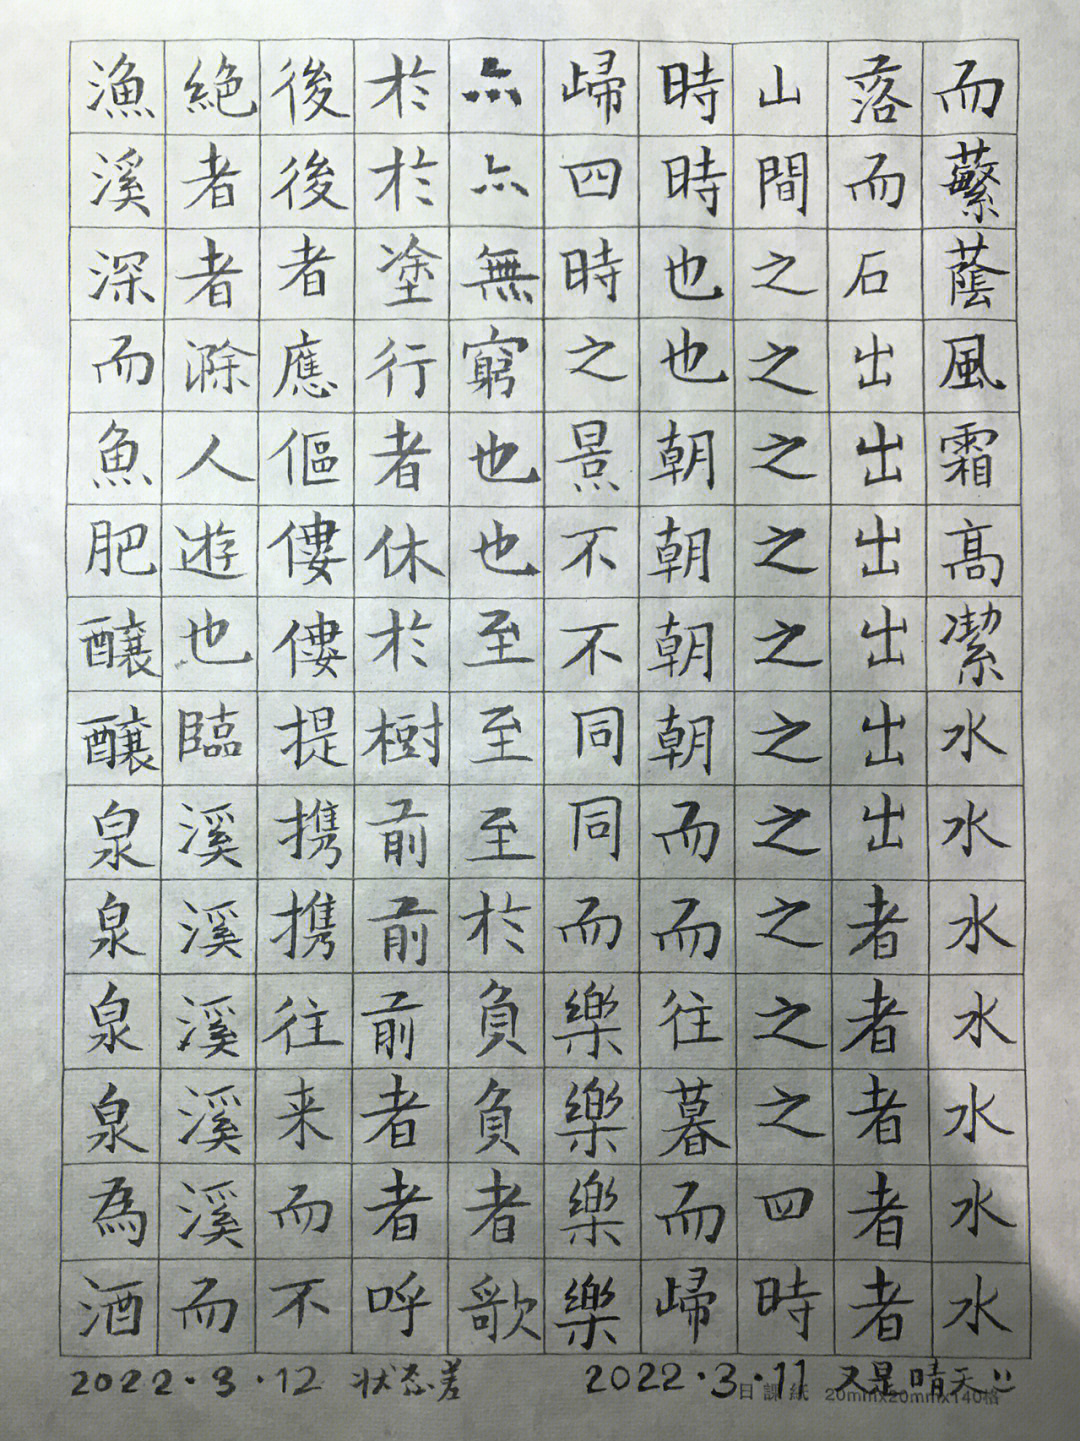 而蘩蔭風霜高潔水水水水水水水
落而石出出出出出出者者者者者
山間之之之之之之之之之之四時
時時也也朝朝朝朝而而往暮而歸
歸四時之景不不同同而樂樂樂樂
亦亦無窮也也至至至於負負者歌
於於塗行者休於樹前前前者者呼
後後者應傴僂僂提携携往来而不
絶者者滁人遊也臨溪溪溪溪溪而
漁溪深而魚肥釀釀泉泉泉泉為酒
2022.3.11 又是晴天
2022.3.12 状态差
日課紙 20mmx20mmx140格